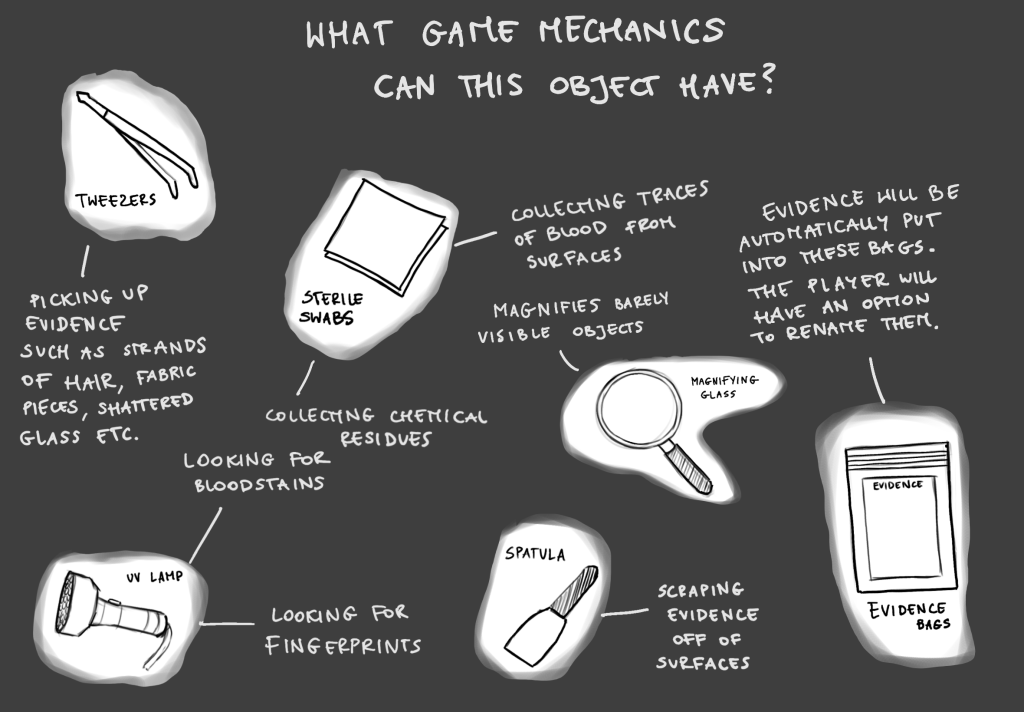 WHAT GAME MECHANICS
CAN THIS OBJECT HAVE?
TWEEZERS
PICKING UP
EVIDENCE
SUCH AS STRANDS
OF HAIR, FABRIC
PIECES, SHATTERED
GLASS ETC.
STERILE
SWABS
COLLECTING TRACES
OF BLOOD FROM
SURFACES
COLLECTING CHEMICAL
RESIDUES
MAGNIFIES BARELY
VISIBLE OBJECTS
MAGNIFYING
GLASS
EVIDENCE WILL BE
AUTOMATICALLY PUT
INTO THESE BAGS.
THE PLAYER WILL
HAVE AN OPTION
TO RENAME THEM.
EVIDENCE
EVIDENCE
BAGS
LOOKING FOR
BLOODSTAINS
UV LAMP
LOOKING FOR
FINGERPRINTS
SPATULA
SCRAPING
EVIDENCE
OFF OF
SURFACES